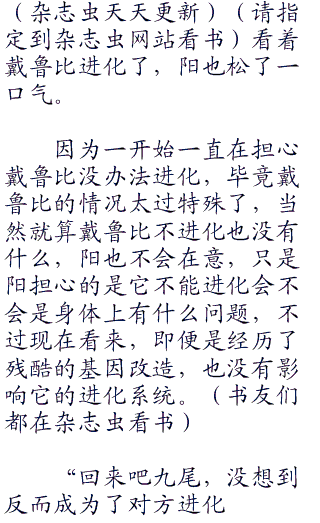 （杂志虫天天更新）（请指
定到杂志虫网站看书）看着
戴鲁比进化了，阳也松了一
口气。
因为一开始一直在担心
戴鲁比没办法进化，毕竟戴
鲁比的情况太过特殊了，当
然就算戴鲁比不进化也没有
什么，阳也不会在意，只是
阳担心的是它不能进化会不
会是身体上有什么问题，不
过现在看来，即便是经历了
残酷的基因改造，也没有影
响它的进化系统。（书友们
都在杂志虫看书）
“回来吧九尾，没想到
反而成为了对方进化